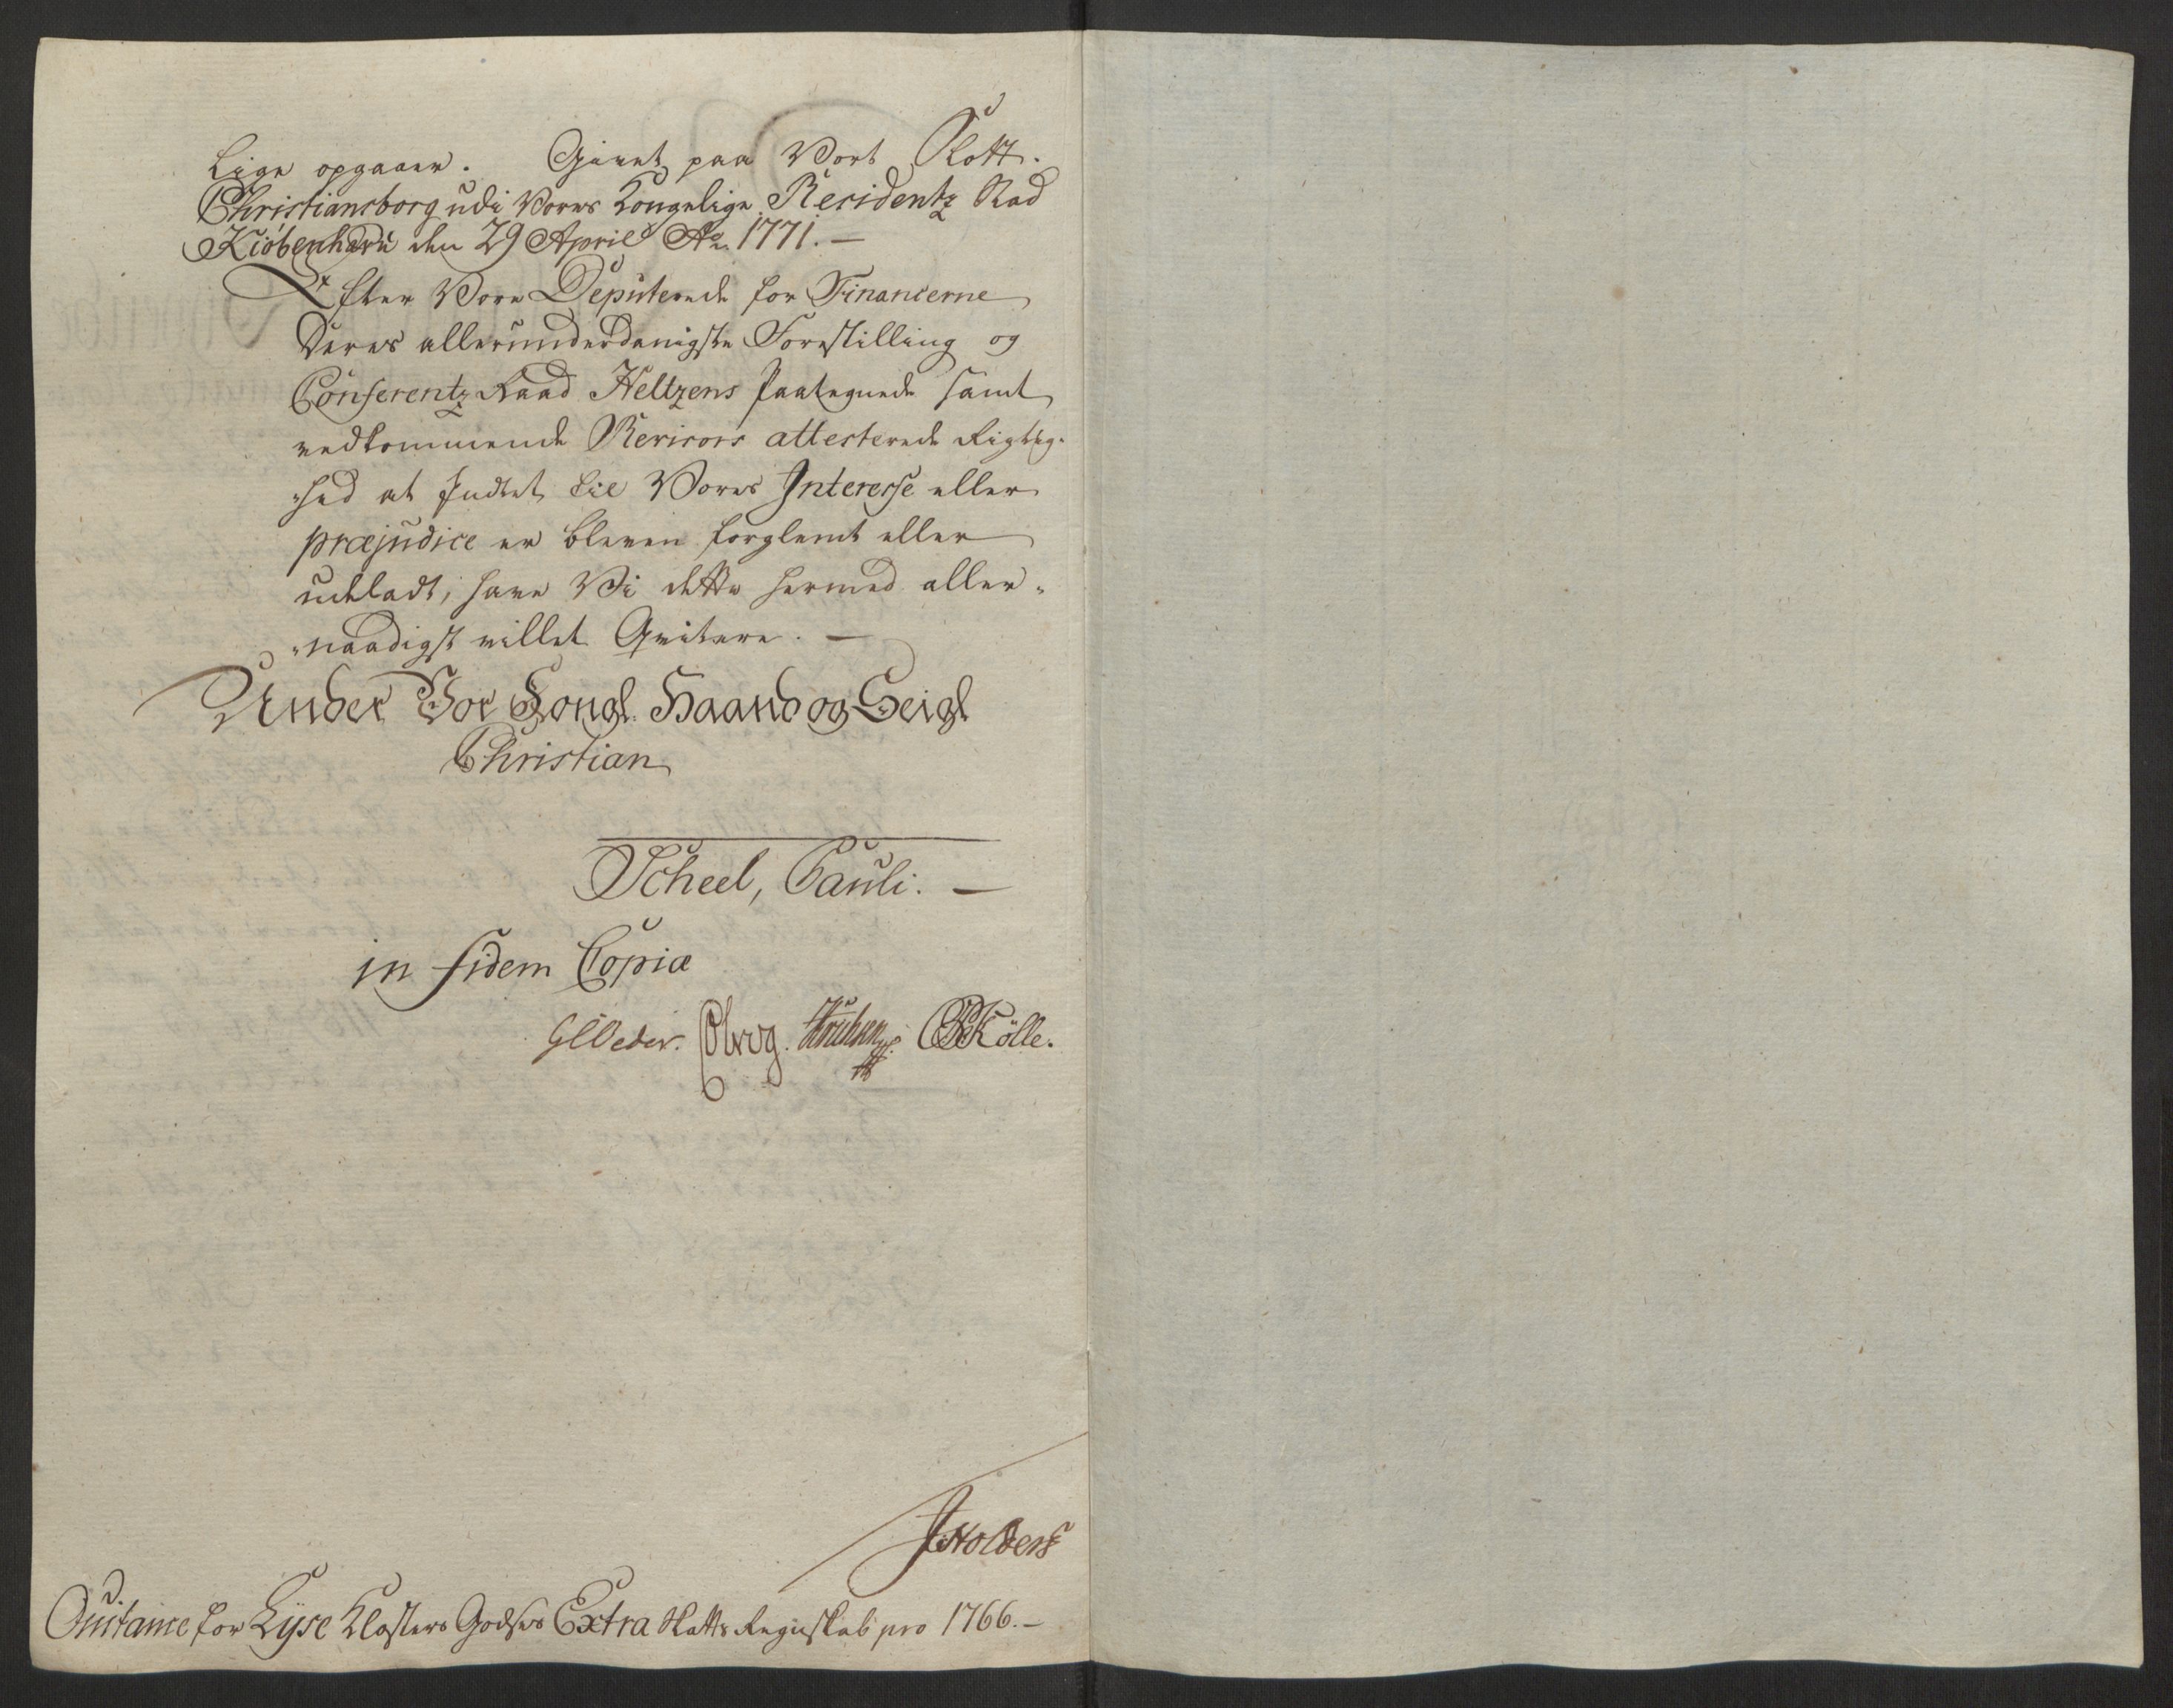 Lige opgaaer. Givet paa Vort Slott.
Christiansborg udi Vores Kongelige Residentz Stad
Kiöbenhavn den 29 April Ao. 1771. —
Efter Vore Deputerede for Financerne
Deres allerunderdanigste Forestilling og
Conferentz Raad Heltzens Paategnede samt
vedkommende Revisors attesterede Rigtig-
hed at Indtet til Vores Interesse eller
præjudice er bleven forglemt eller
udeladt, have Vi dette hermed aller-
naadigst villet Qvitere. —
Under Vor Kongl. Haand og Seigl
Christian
Scheel, Pauli. —
in fidem Copiæ
Kölle.
Quitance for Lyse Klosters Godses Extra Skatts Regnskab pro 1766. —